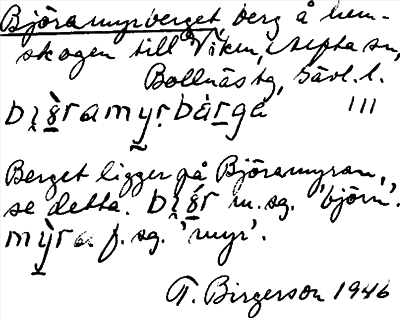 Björamyrberget berg å hem-
skogen till Viken, Alfta sn,
Bollnäs tg, Gävl. l.
bi̯ö̀ramyr̥bàrga III
Berget ligger på Björamyran,
se detta. bi̯ö́r m. sg. 'björn'.
mỳra f. sg. 'myr'.
T. Birgerson 1946